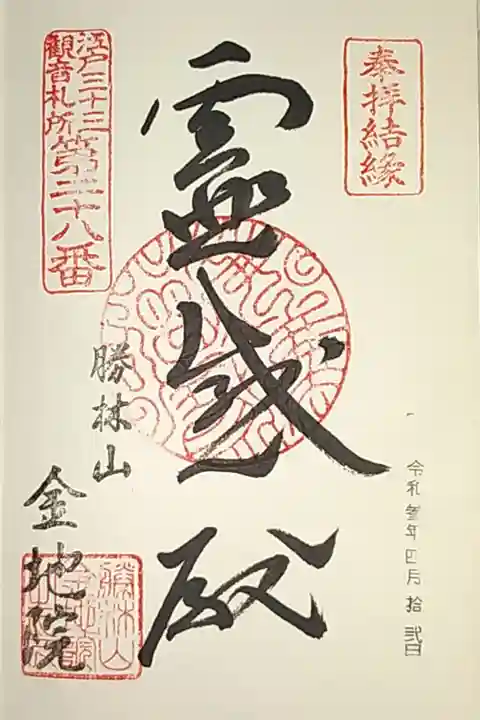 奉拝結縁
令和参年四月拾弐日
霊感殿
江戸三十三
観音札所
第二十八番
勝林山
金地院